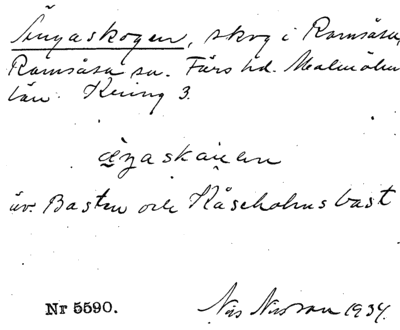 Ängaskogen, skog i Ramsåsa,
Ramsåsa sn. Färs hd. Malmöhus
län. Kering 3.
äv. Basten och Kåseholmsbast
Nr 5590.
Nils Nilsson 1934.